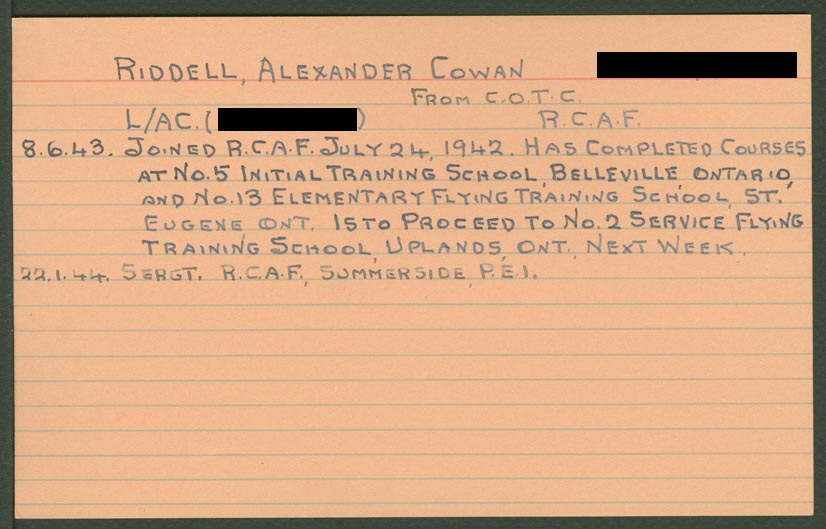 RIDDELL, ALEXANDER COWAN
FROM C.O.T.C.
L/AC. ( ) R.C.A.F.
8.6.43. JOINED R.C.A.F. JULY 24, 1942. HAS COMPLETED COURSES
AT NO.5 INITIAL TRAINING SCHOOL, BELLEVILLE, ONTARIO,
AND NO.13 ELEMENTARY FLYING TRAINING SCHOOL, ST.
EUGENE ONT. IS TO PROCEED TO NO.2 SERVICE FLYING
TRAINING SCHOOL, UPLANDS, ONT., NEXT WEEK.
22.1.44. SERGT. R.C.A.F., SUMMERSIDE, P.E.I.